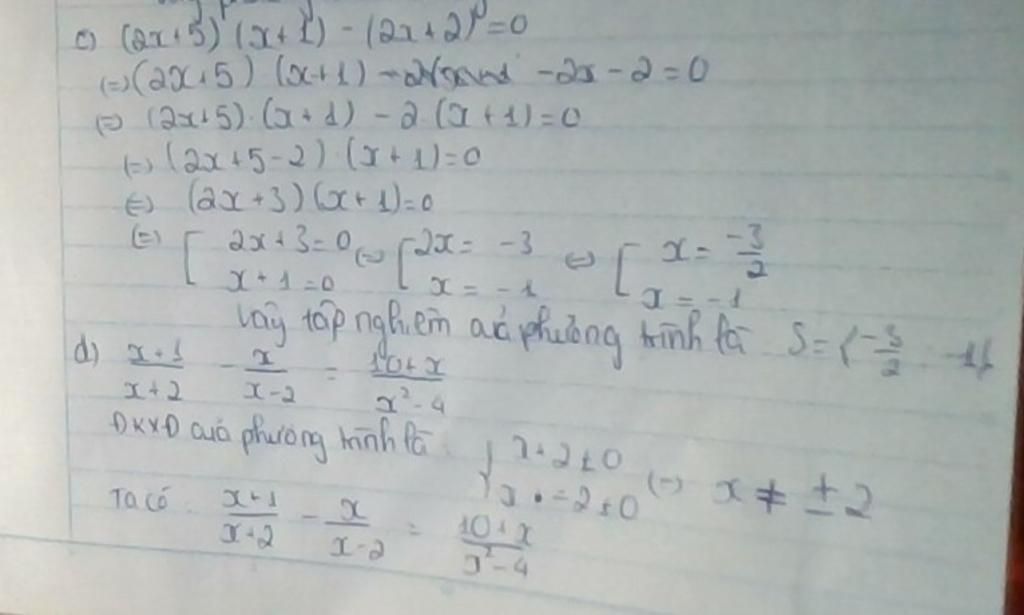 c) (2x+5) (x+1) - (2x+2) = 0
(=) (2x+5) (x+1) - 2x - 2 = 0
(=) (2x+5) . (x+1) - 2 . (x+1) = 0
(=) (2x+5-2) . (x+1) = 0
(=) (2x+3) (x+1) = 0
(=) [ 2x+3=0 (=) [ 2x = -3 (=) [ x = -3/2
x+1=0 x = -1 x = -1
Vậy tập nghiệm của phương trình là S = { -3/2 -1 }
d) (x+1)/(x+2) - x/(x-2) = (10+x)/(x²-4)
ĐKXĐ của phương trình là { x+2 ≠ 0
x - 2 ≠ 0 (=) x ≠ ± 2
Ta có : (x+1)/(x+2) - x/(x-2) = (10+x)/(x²-4)